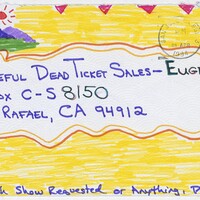 EFUL DEAD TICKET SALES- EUG
OX C-S 8150
RAFAEL, CA 94912
h Show Requested or Anything, D